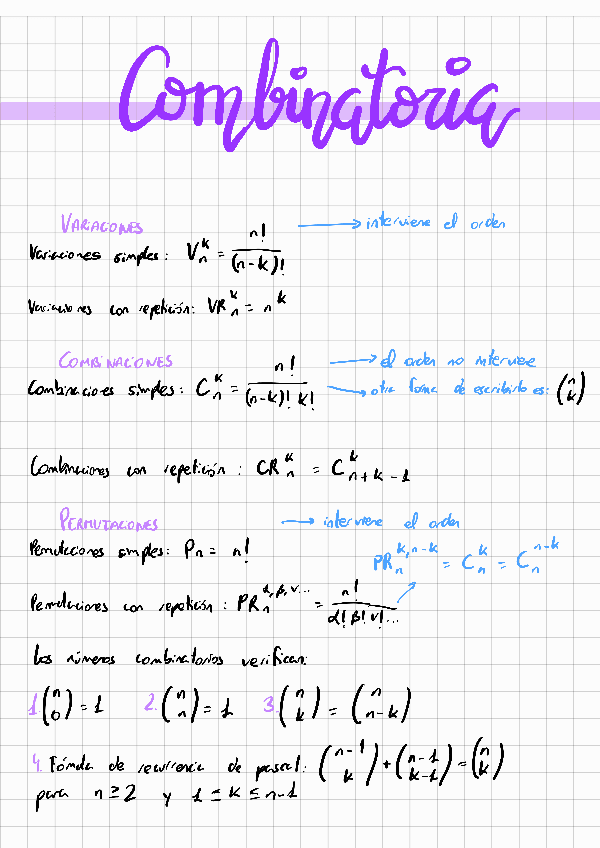 Combinatoria
VARIACIONES → interviene el orden
Variaciones simples: V_n^k = n!/(n-k)!
Variaciones con repetición: VR_n^k = n^k
COMBINACIONES → el orden no interviene
Combinaciones simples: C_n^k = n!/((n-k)! k!) → otra forma de escribirlo es: (n k)
Combinaciones con repetición: CR_n^k = C_{n+k-1}^k
PERMUTACIONES → interviene el orden
Permutaciones simples: P_n = n!
PR_n^{k,n-k} = C_n^k = C_n^{n-k}
Permutaciones con repetición: PR_n^{α,β,γ...} = n!/(α! β! γ!...)
Los números combinatorios verifican:
1. (n 0) = 1 2. (n n) = 1 3. (n k) = (n n-k)
4. Fórmula de recurrencia de pascal: (n-1 k) + (n-1 k-1) = (n k)
para n ≥ 2 y 1 ≤ k ≤ n-1